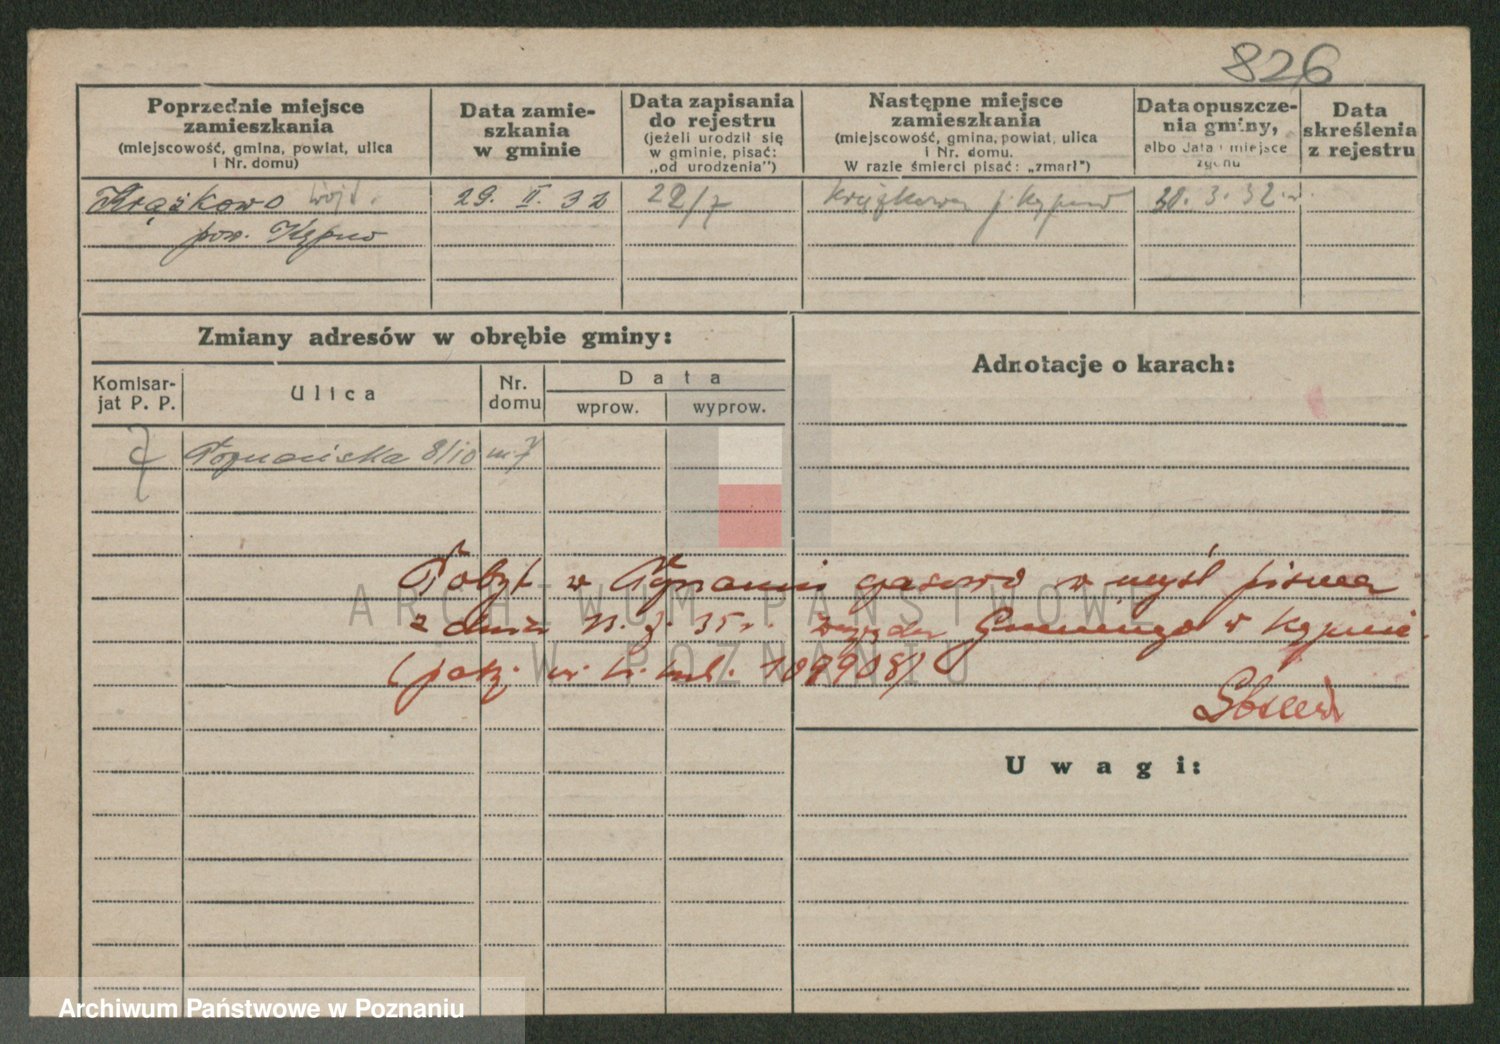 826
Poprzednie miejsce
zamieszkania
(miejscowość, gmina, powiat, ulica
i Nr. domu)
Data zamie-
szkania
w gminie
Data zapisania
do rejestru
(jeżeli urodził się
w gminie, pisać:
„od urodzenia")
Następne miejsce
zamieszkania
(miejscowość, gmina, powiat, ulica
i Nr. domu.
W razie śmierci pisać: „zmarł")
Data opuszcze-
nia gminy,
albo data i miejsce
zgonu
Data
skreślenia
z rejestru
Krążkowo 29. II. 32 22/7 Krążkowo p. Kępno 3. 32
pow. Kępno
Zmiany adresów w obrębie gminy:
Komisar-
jat P. P.
Ulica
Nr.
domu
Data
wprow.
wyprow.
7 Poznańska 8/10 m. 7
Adnotacje o karach:
Pobyt w Poznaniu czasowo w myśl pisma
z dnia 35 r. Gminnego w Kępnie.
ARCHIWUM PAŃSTWOWE
W POZNANIU
Uwagi:
Archiwum Państwowe w Poznaniu